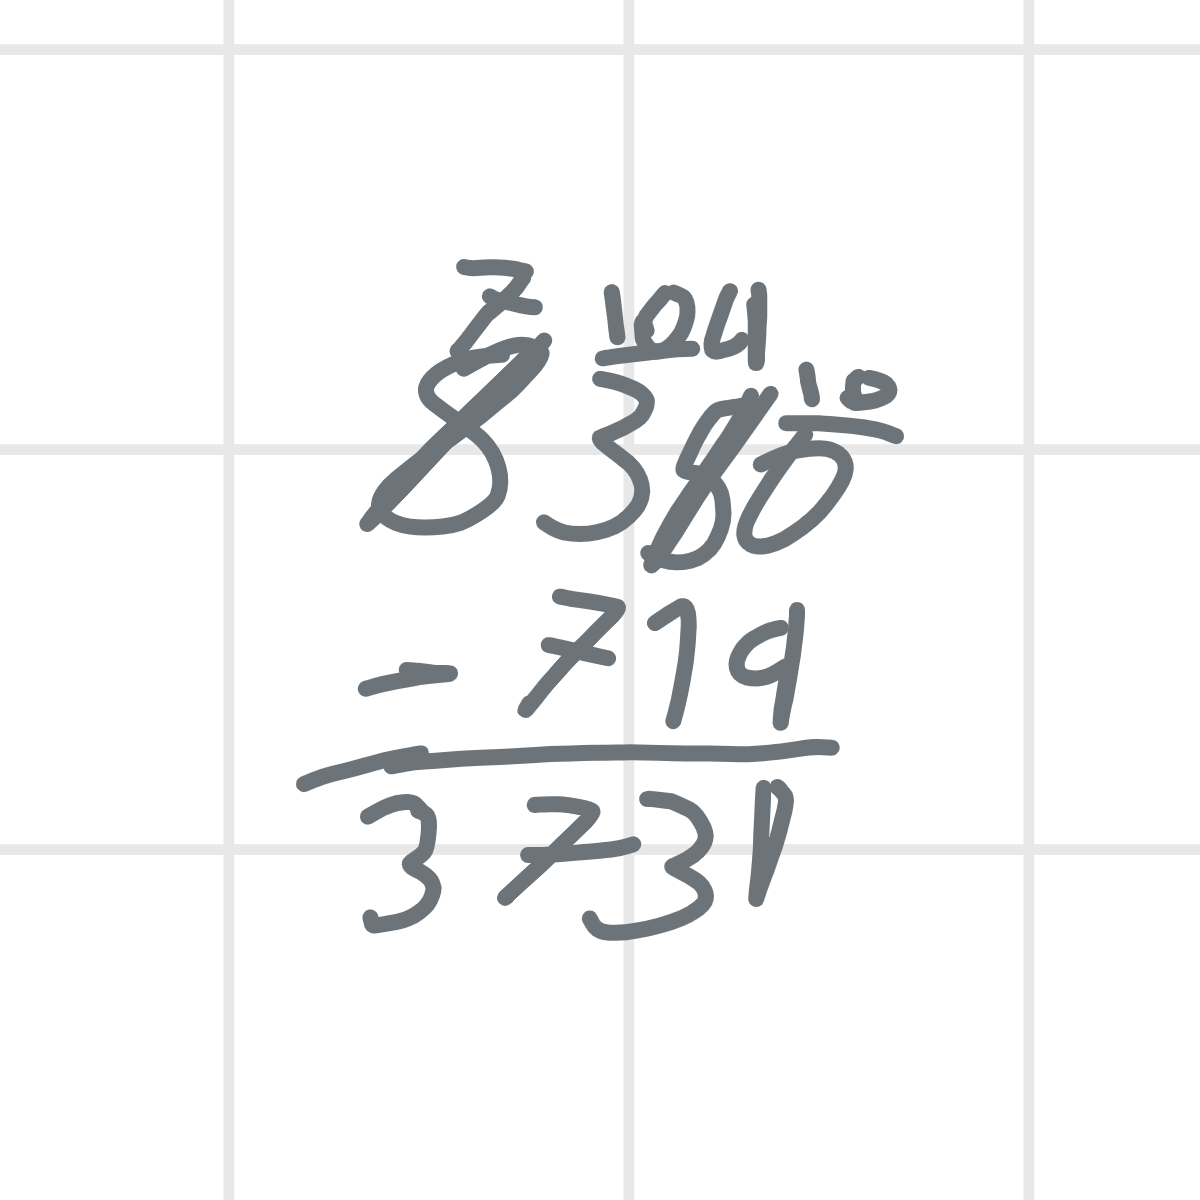 7 10 4 10
8 3 8 0
- 7 1 9
3 7 3 1